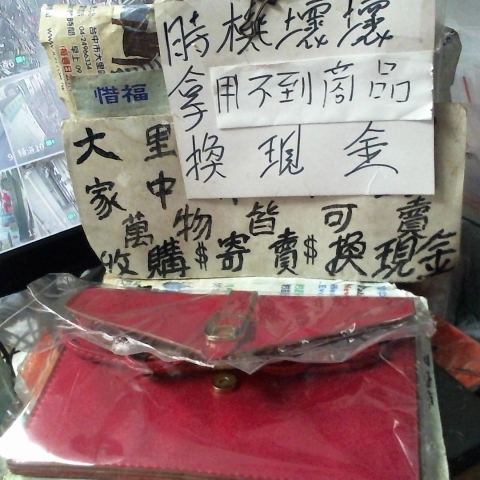 惜福
時機壞壞
拿用不到商品
換現金
大里
家中
賣
萬物皆可
收購$寄賣$換現金